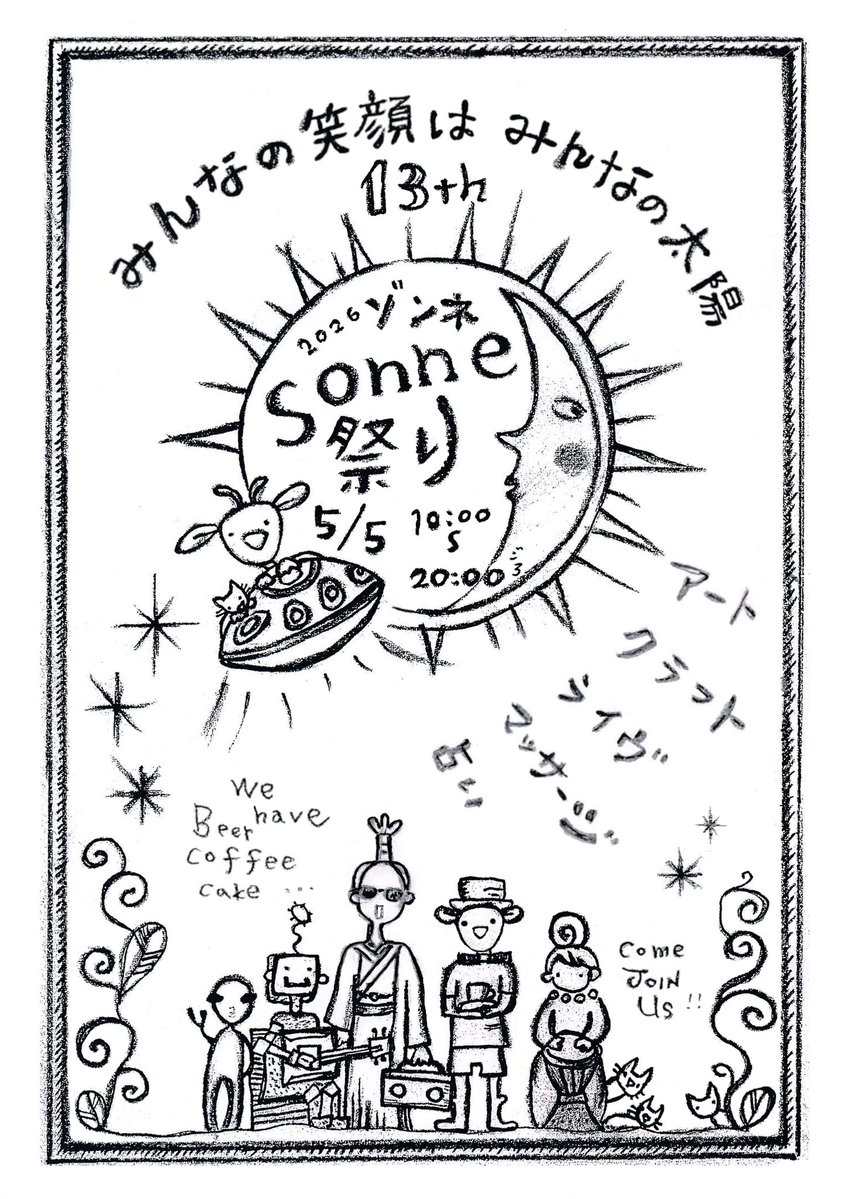 みんなの笑顔は みんなの太陽
13th
2026 ゾンネ
Sonne
祭り
5/5 10:00
20:00ごろ
アート
クラフト
ライヴ
マッサージ
占い
We
have
Beer
coffee
cake ...
Come
Join
Us !!